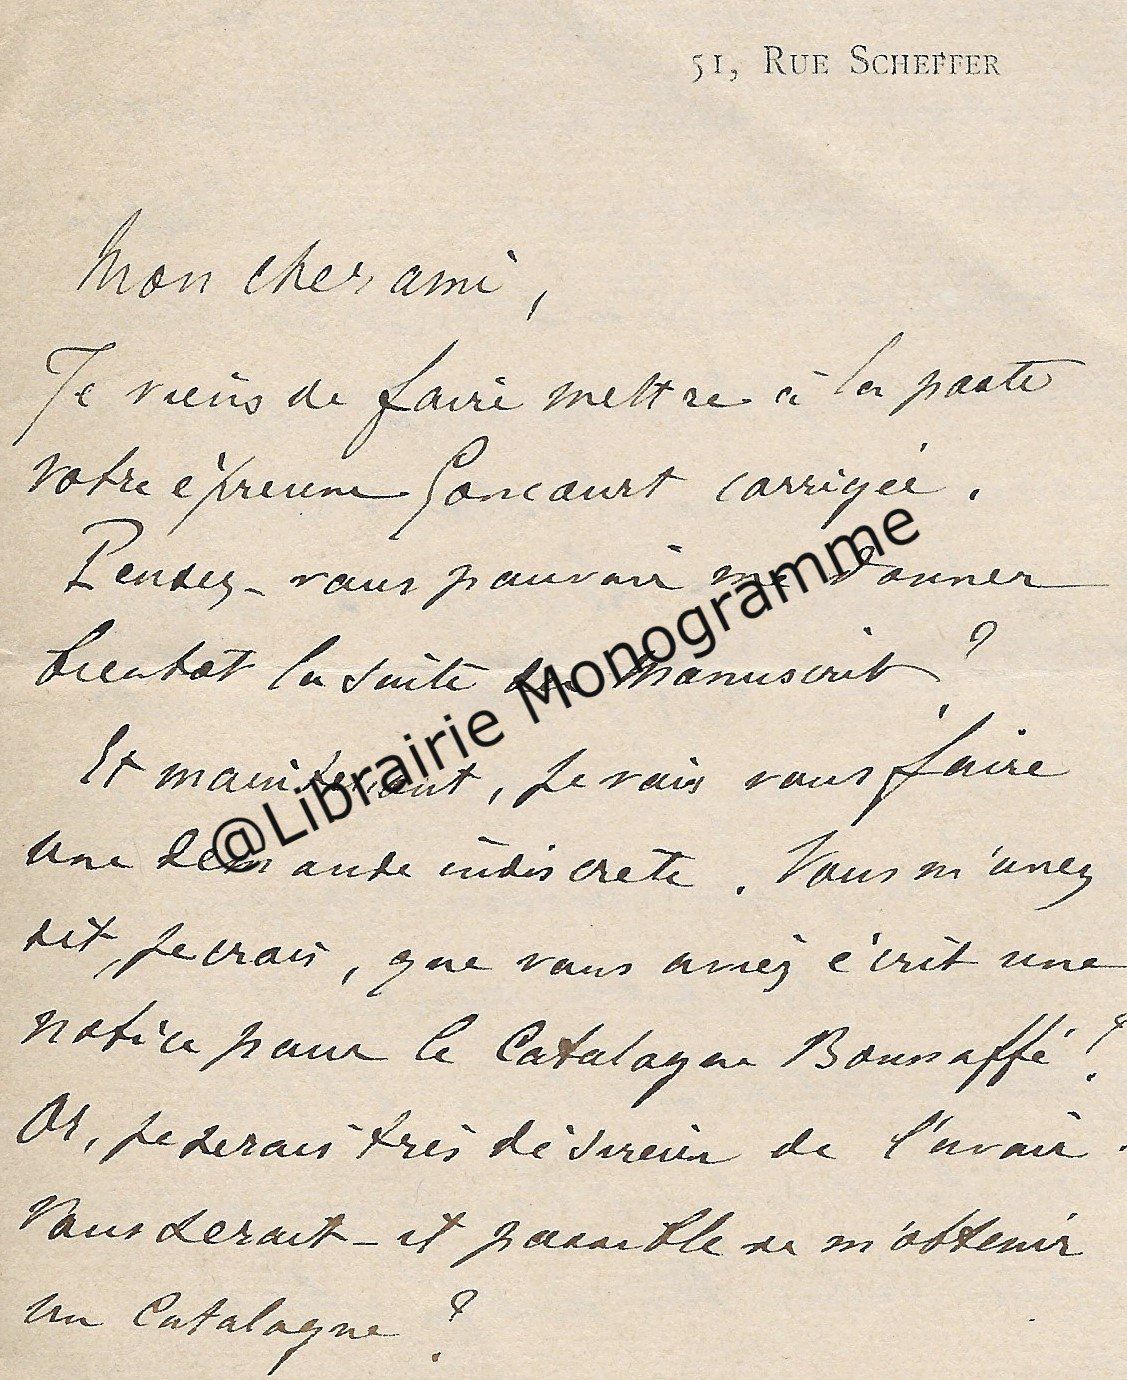 51, RUE SCHEFFER
Mon cher ami,
Je viens de faire mettre à la poste
votre épreuve Goncourt corrigée.
Pensez-vous pouvoir me donner
bientôt la suite du manuscrit ?
Et maintenant, je vais vous faire
une demande indiscrète. Vous m'avez
dit, je crois, que vous aviez écrit une
notice pour le Catalogue Bonnaffé ?
Or, je serais très désireux de l'avoir.
Vous serait-il possible de m'obtenir
un Catalogue ?
@Librairie Monogramme